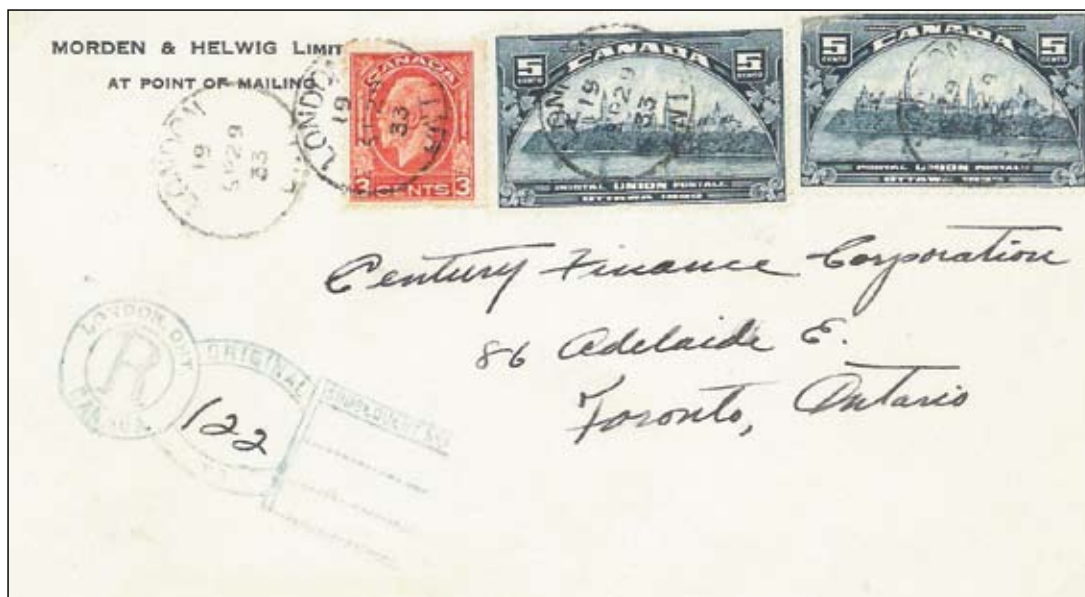 MORDEN & HELWIG LIMIT
AT POINT OF MAILING
LONDON
19
SP 29
33
3 CANADA 3
CENTS
LONDON
19
SP 29
33
ONT
5 CANADA 5
CENTS CENTS
POSTAL UNION POSTALE
OTTAWA 1933
19
29
33
5 CANADA 5
CENTS CENTS
POSTAL UNION POSTALE
OTTAWA
Century Finance Corporation
86 Adelaide E.
Toronto, Ontario
LONDON, ONT
R
CANADA
ORIGINAL
122